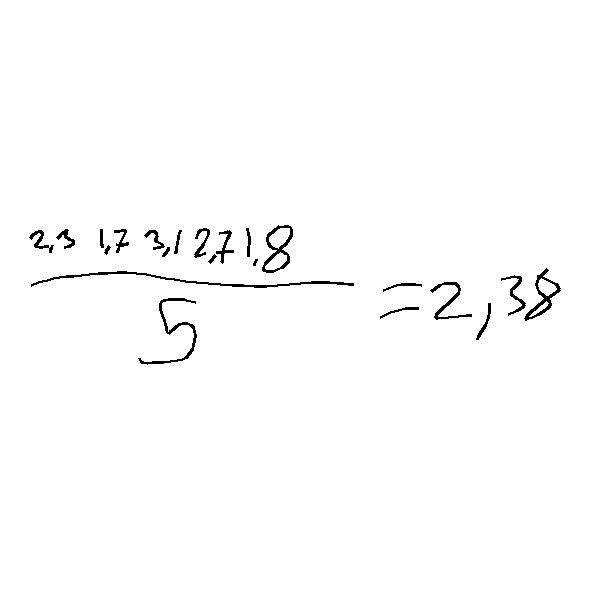 2,3 1,7 3,1 2,7 1,8
5
=2,38